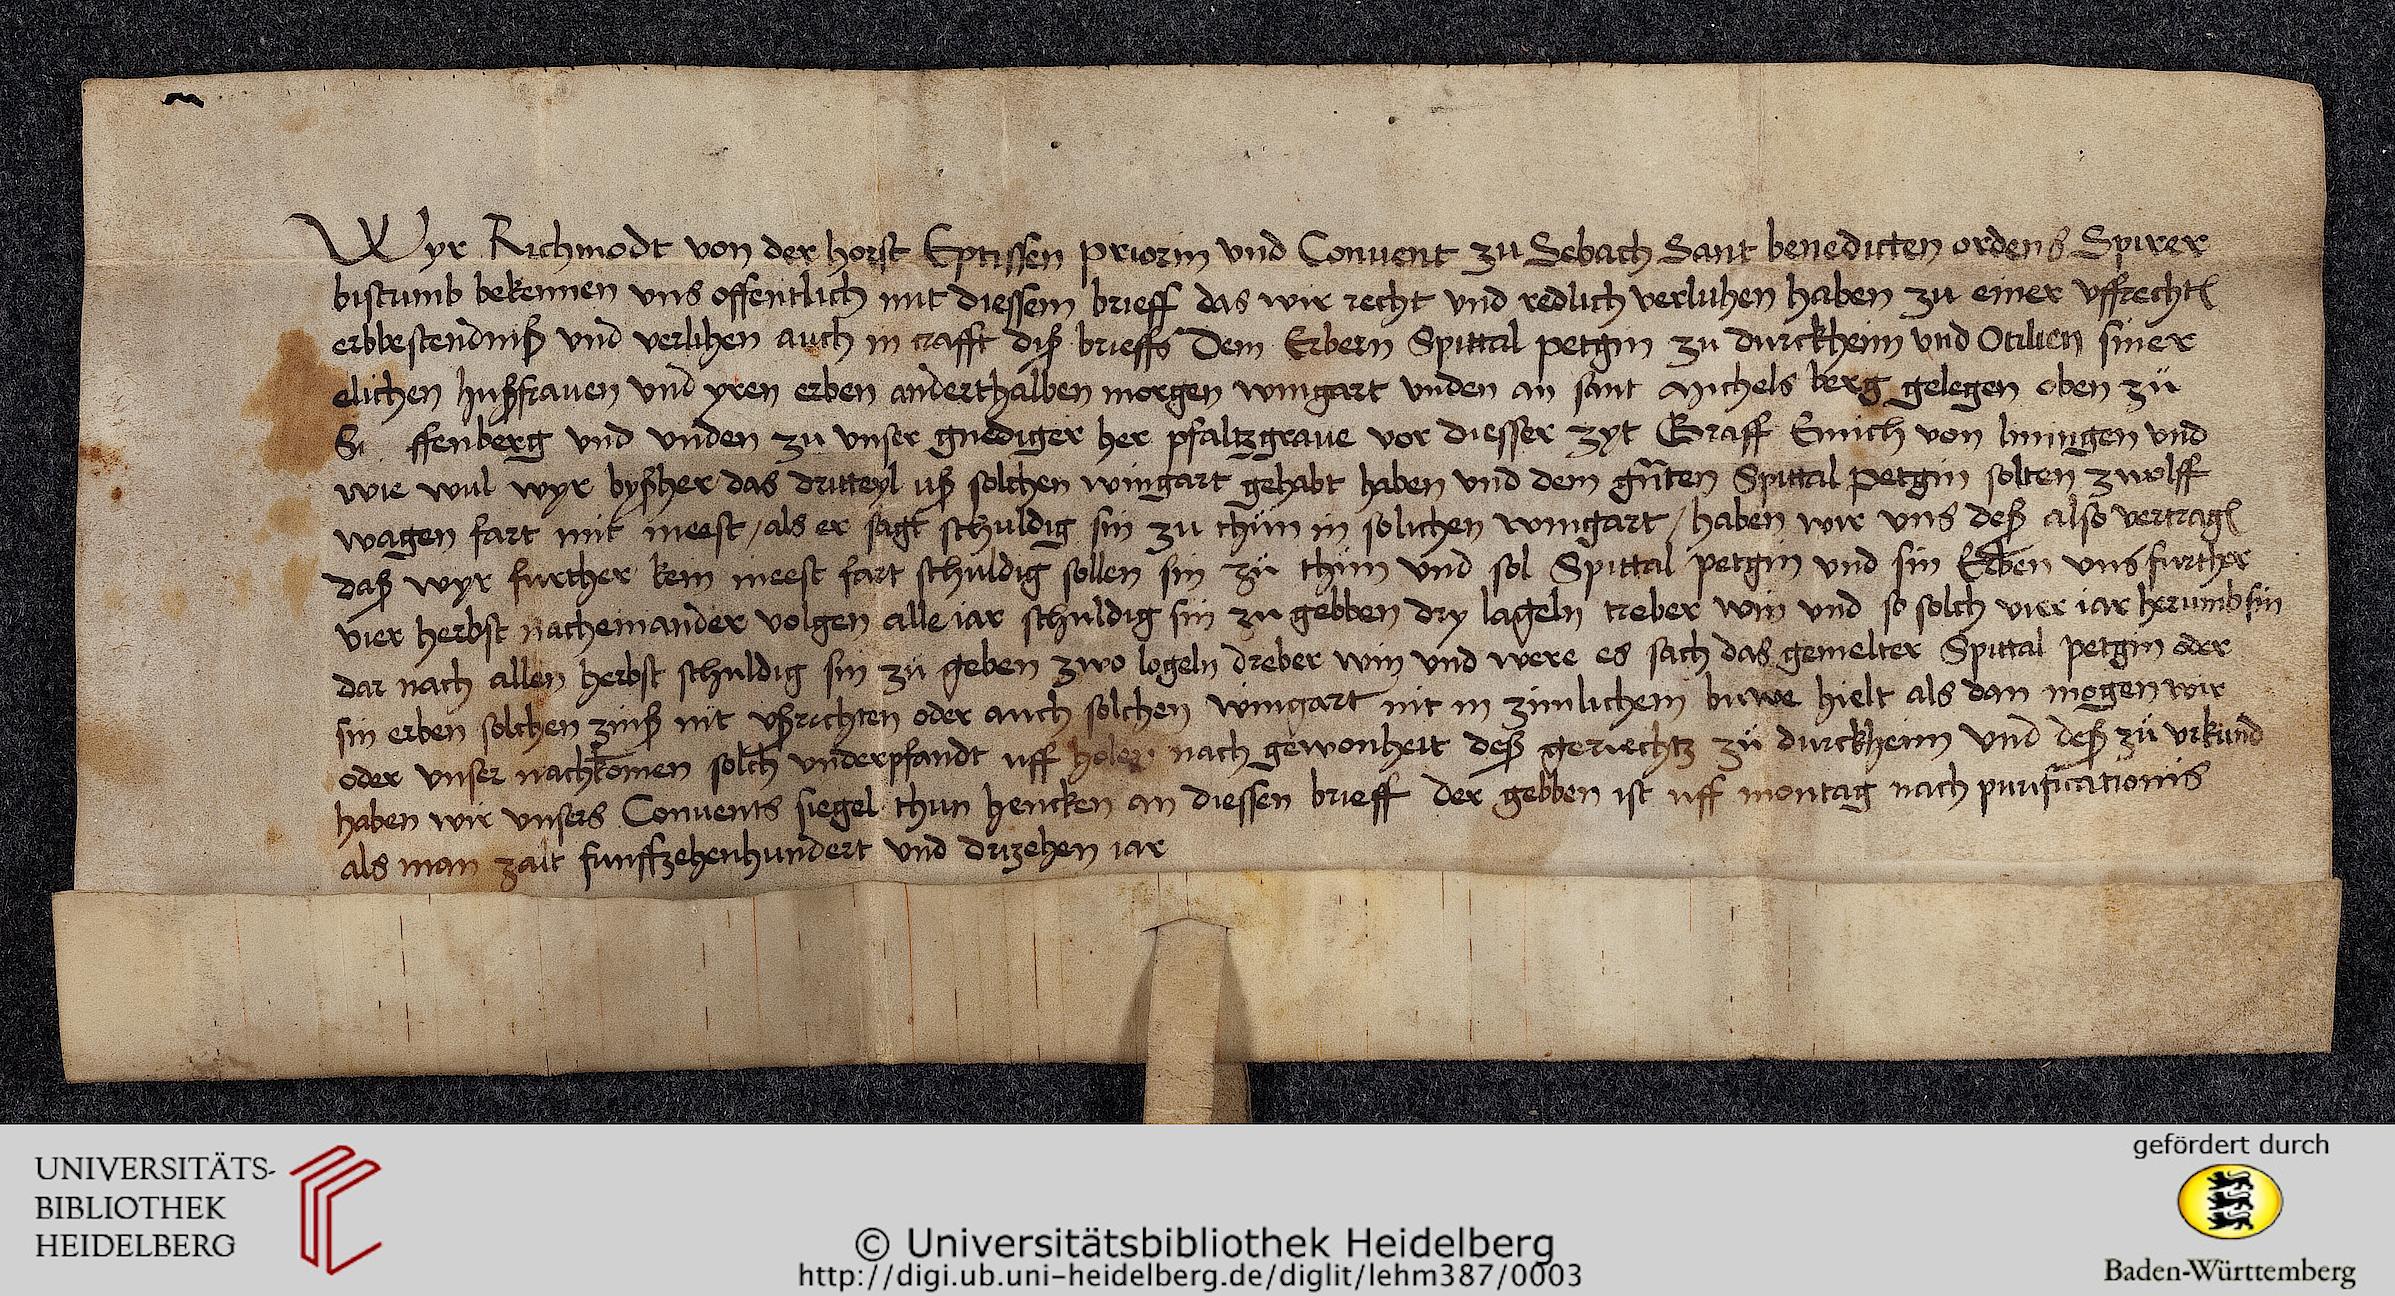 Wyr Richmodt von der horst Eptissen priorin vnd Conuent zu Sebach Sant benedicten ordens Spirer
bistumb bekennen vns offentlich mit diessem brieff das wir recht vnd redlich verluhen haben zu einer vffrecht
erbbestendniß vnd verlihen auch in crafft diß brieffs Dem Erbern Spittal petgin zu durckheim vnd Otilien siner
elichen hußfrauen vnd yren erben anderthalben morgen wingart vnden an sant Michels berg gelegen oben zü
ffenberg vnd vnden zu vnser gnediger her pfaltzgraue vor diesser zyt Graff Emich von liningen vnd
wie wul wyr byßher das dritteyl uß solchen wingart gehabt haben vnd dem gnten Spittal petgin solten zwolff
wagen fart mit meest / als er sagt schuldig sin zu thün in solichen wingart / haben wir vns deß also vertrag
daß wyr further kein meest fart schuldig sollen sin zü thün vnd sol Spittal petgin vnd sin Erben vns further
vier herbst nacheinander volgen alle iar schuldig sin zu gebben dry lageln treber win vnd so solch vier iar herumb sin
dar nach allen herbst schuldig sin zü geben zwo logeln dreber win vnd were es sach das gemelter Spittal petgin oder
sin erben solchen zinß nit vßrichten oder auch solchen wingart nit in zimlichem buwe hielt als dan mogen wir
oder vnser nachkomen solch vnderpfandt uff holen nach gewonheit deß geriechtz zü durckheim vnd deß zü vrkund
haben wir vnsers Conuents siegel thun hencken an diessen brieff der gebben ist uff montag nach purificationis
als man zalt funffzehenhundert vnd drizehen iar
UNIVERSITÄTS-
BIBLIOTHEK
HEIDELBERG
© Universitätsbibliothek Heidelberg
http://digi.ub.uni-heidelberg.de/diglit/lehm387/0003
gefördert durch
Baden-Württemberg